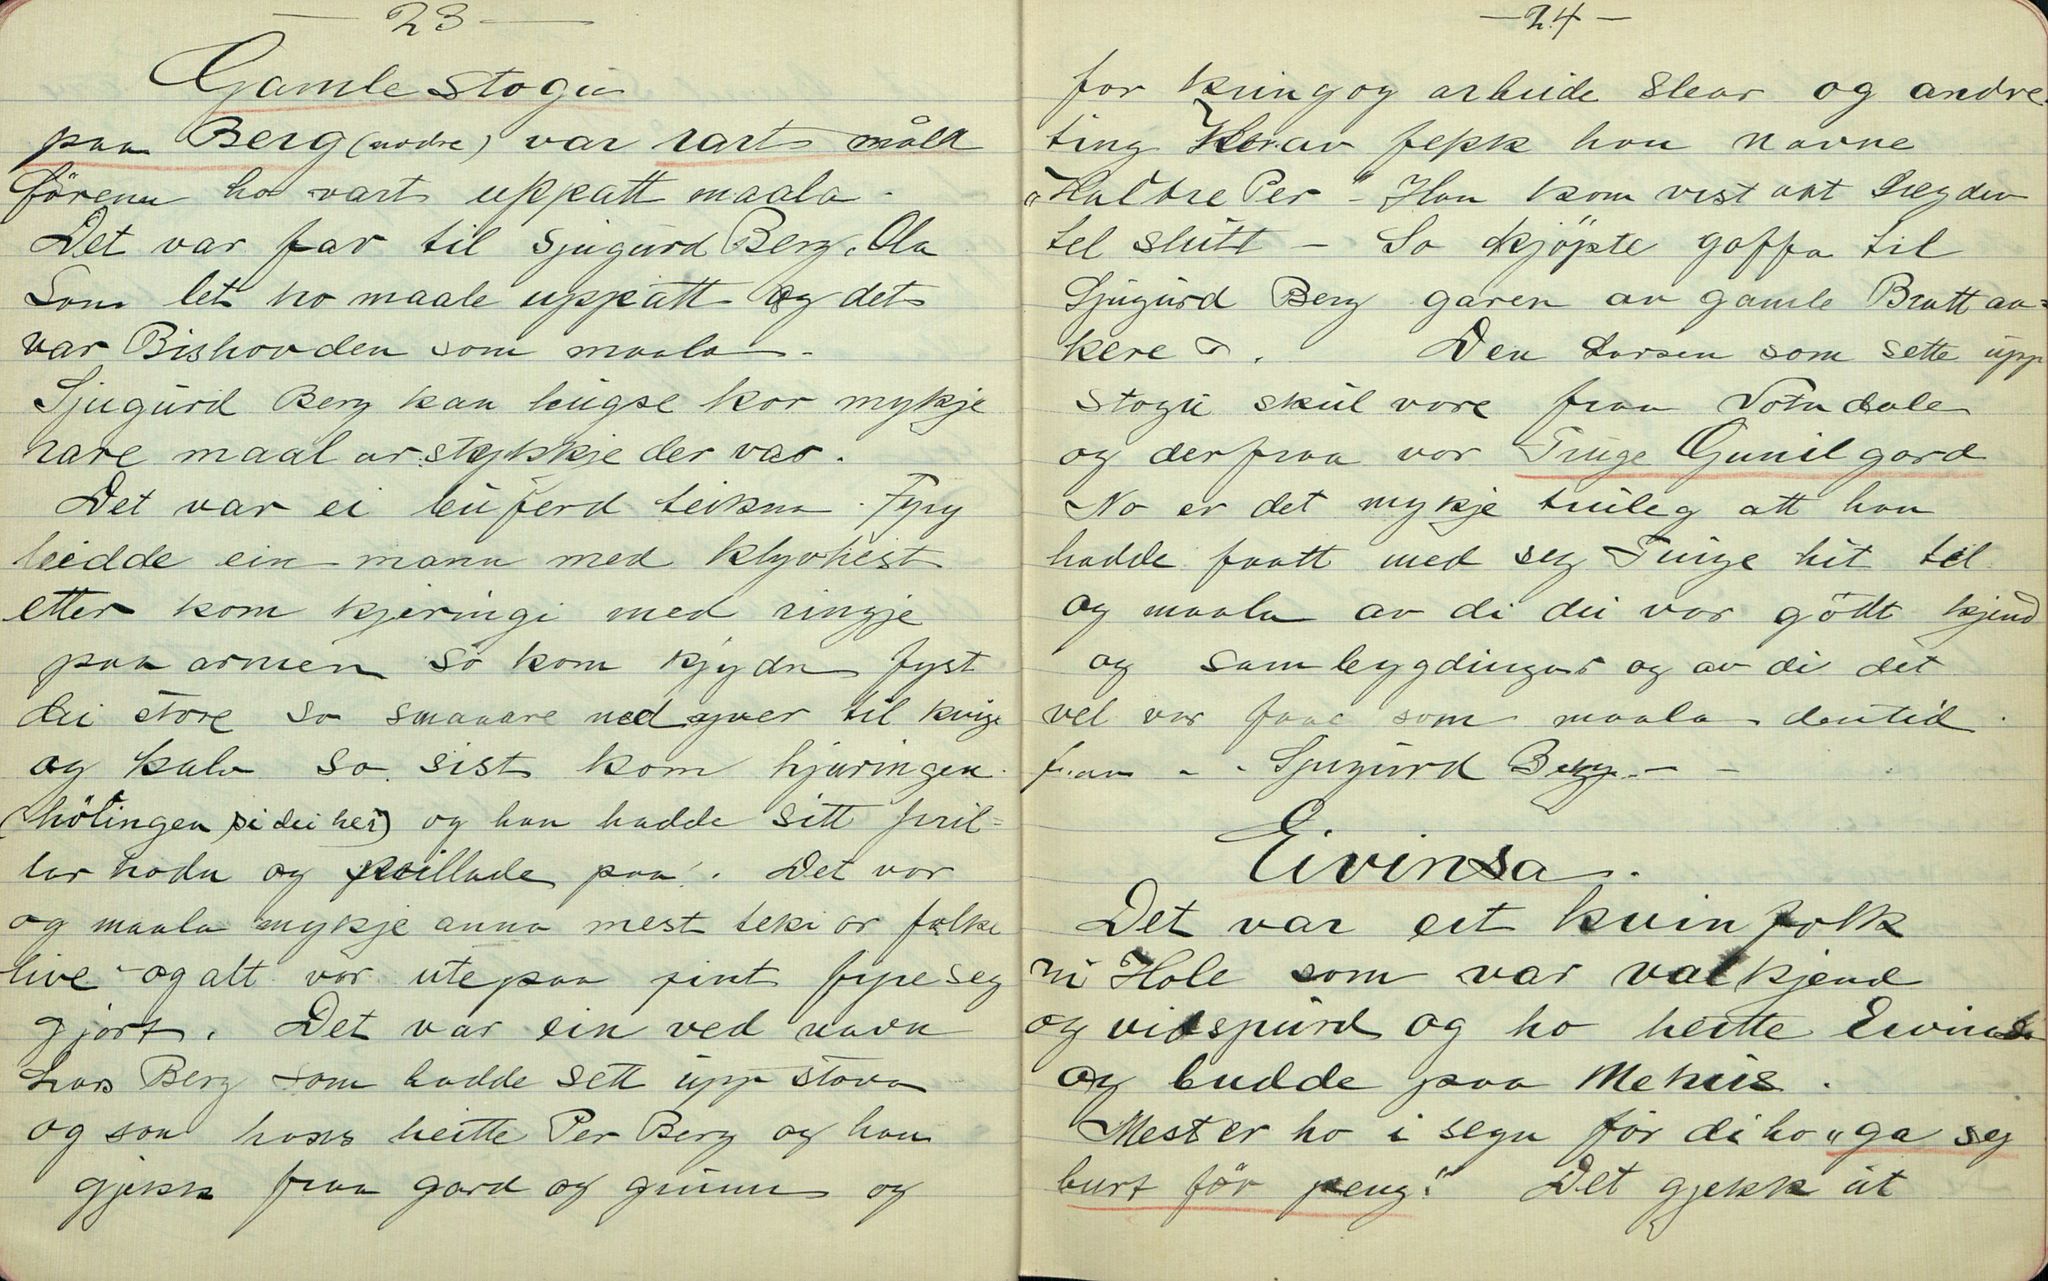 — 23 —
Gamlestogu
paa Berg (nodre) var rart målå
förenn ho vart uppatt maala.
Det var far til Sjugurd Berg, Ola
Som let ho maale uppatt og det
var Bishovden som maala.
Sjugurd Berg kan hugse kor mykje
rare maalarstykkje der var.
Det var ei buferd teikna. Fyry
leidde ein mann med klyvhest
etter kom kjeringi med ringje
paa armen so kom kjydn fyst
dei store so smaaare nedyver til kvige
og kalv so sist kom hjuringen
(hötingen si dei her) og han hadde sitt pril-
lar hodn og prillade paa. Det var
og maala mykje anna mest teki or folke
live - og alt var utepaa fint fype seg
gjort. Det var ein ved navn
Lars Berg som hadde sett upp stova
og son hans heitte Per Berg og han
gjekk fraa gard og grunn og
— 24 —
for kring og arbeide slear og andre
ting. Herav fekk han navne
"Haltre Per" - Han kom vist aat Legden
tel slutt - So kjöpte goffa til
Sjugurd Berg garen av gamle Brattaa-
kere. Den Larsen som sette upp
stogu skul vore fraa Votndale
og derfraa var Truge Gunilgard
No er det mykje truleg att han
hadde faatt med seg Truge hit til
og maala av di dei var gödt kjend
og sambygdingar og av di det
vel var faae som maala dentid.
fraa - - Sjugurd Berg - -
Eivinsa.
Det var eit kvinfolk
ni Hole som var valkjend
og vidspurd og ho heitte Eivinsa
og budde paa Mehus.
Mest er ho i segn för di ho "ga seg
burt för peng." Det gjekk åt